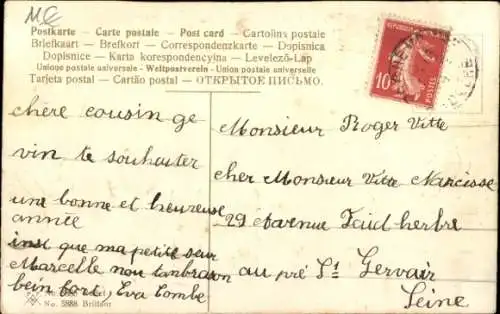 MC
Postkarte - Carte postale - Post card - Cartolina postale
Briefkaart - Brefkort - Correspondenzkarte - Dopisnica
Dopisnice - Karta korespondencyjna - Levelező-Lap
Union postale universelle - Weltpostverein - Union postale universelle
Tarjeta postal - Cartão postal - ОТКРЫТОЕ ПИСЬМО.
10
chère cousin ge
vin te souhaiter
une bonne et heureuse
année
insi que ma petite seur
Marcelle nou tenbrason
bein fort, Eva Combe
No. 5888 Brillant
Monsieur Roger Vitte
cher Monsieur Vitte Narcisse
29 Avenue Faidherbe
au pré St Gervair
Seine